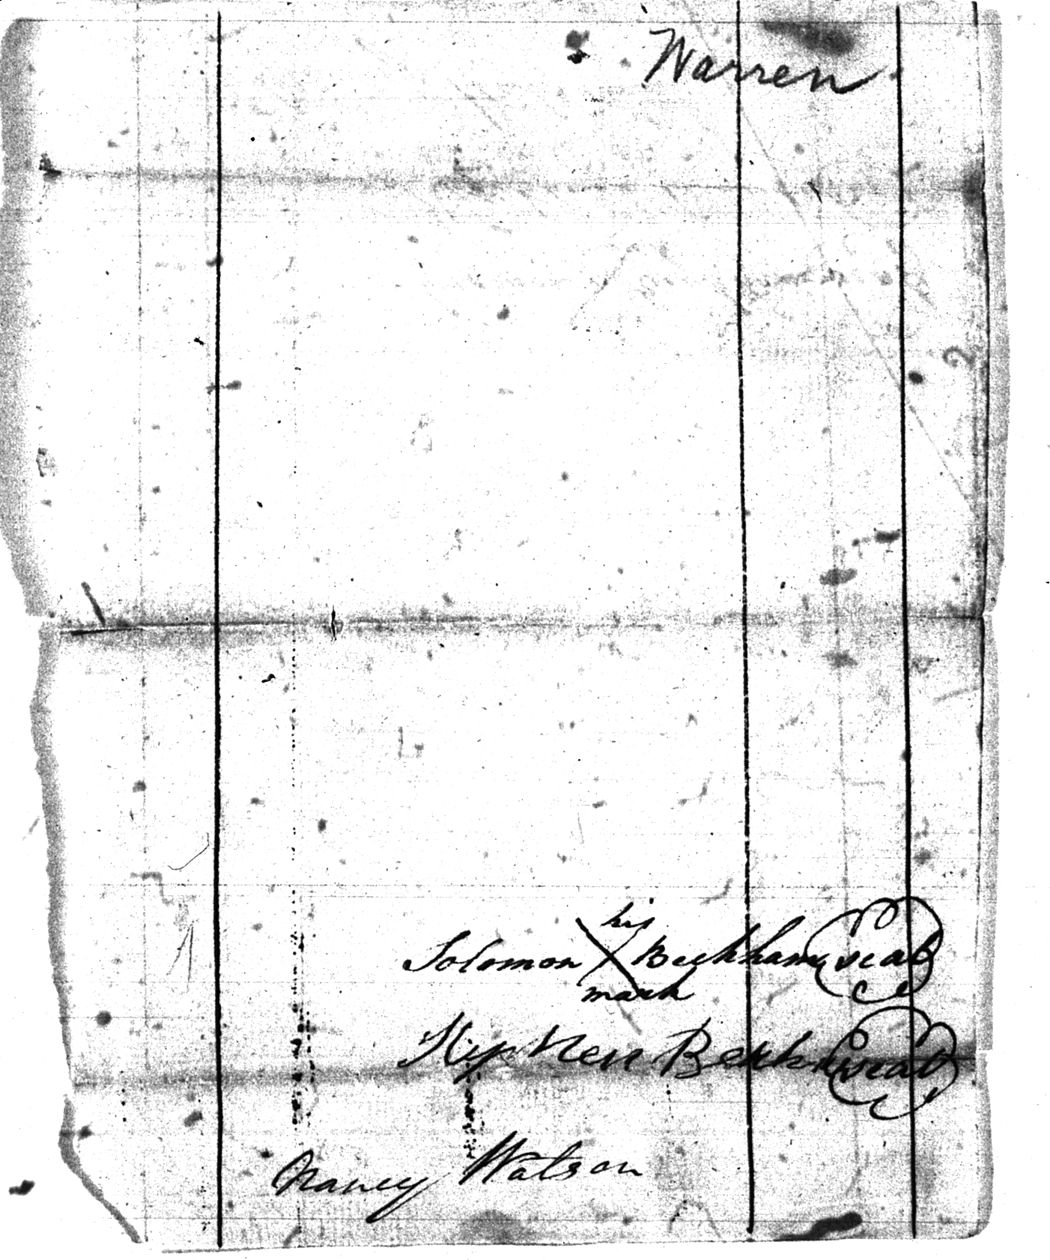 Warren
2
his
Solomon X Beckham seal
mark
Stephen Beckham seal
Nancy Watson